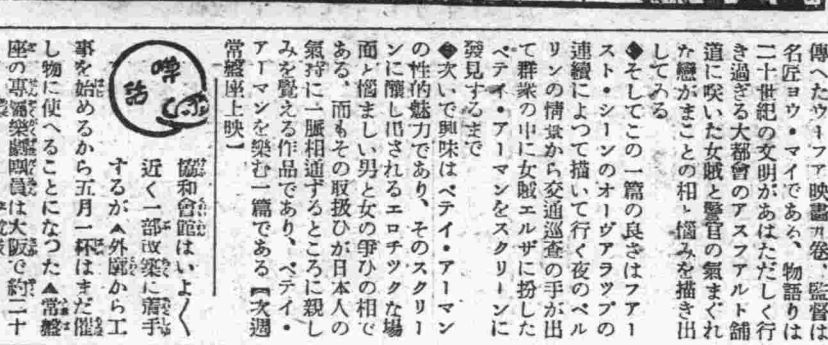 傳へたウーファ映畫九卷、監督は
名匠ヨウ・マイである、物語りは
二十世紀の文明があはただしく行
き過ぎる大都會のアスファルト舖
道に咲いた女賊と警官の氣まぐれ
な戀がまことの相と惱みを描き出
してゐる
◆そしてこの一篇の良さはファー
スト・シーンのオーヴアラップの
連續によつて描いて行く夜のベル
リンの情景から交通巡査の手が出
て群衆の中に女賊エルザに扮した
ベテイ・アーマンをスクリーンに
發見するまで
◆次いで興味はベテイ・アーマン
の性的魅力であり、そのスクリー
ンに釀し出されるエロチックな場
面と惱ましい男と女の爭ひの相で
ある、而もその取扱ひが日本人の
氣持に一脈相通ずるところに親し
みを覺える作品であり、ベテイ・
アーマンを樂む一篇である【次週
常盤座上映】
噂話
協和會館はいよ〱
近く一部改築に着手
するが▲外廓から工
事を始めるから五月一杯はまだ催
し物に使へることになつた▲常盤
座の專屬樂劇團員は大阪で約二十